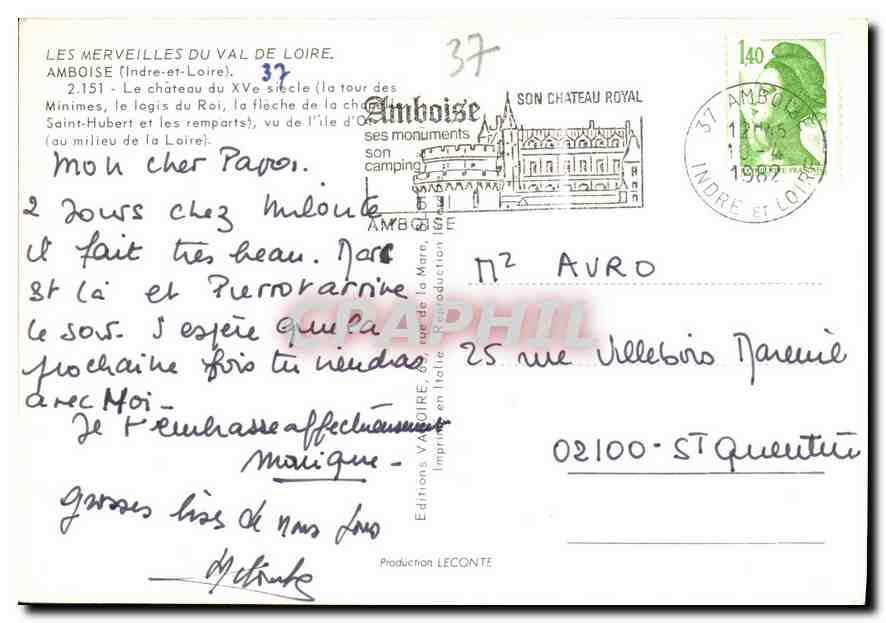 LES MERVEILLES DU VAL DE LOIRE.
AMBOISE (Indre-et-Loire). 37
2.151 - Le château du XVe siècle (la tour des
Minimes, le logis du Roi, la flèche de la chapelle
Saint-Hubert et les remparts), vu de l'île d'Or
(au milieu de la Loire).
Mon cher Papa.
2 Jours chez Milonte
il fait très beau. Marc
st là et Pierrot arrive
le soir. J'espère que la
prochaine fois tu viendras
avec Moi -
Je t'embrasse affectueusement
Monique -
grosses bises de nous tous
37
Amboise
ses monuments
son
camping
SON CHATEAU ROYAL
AMBOISE
37 AMBOISE
12H45
1982
INDRE ET LOIRE
1,40
Mr AVRO
25 rue Villebois Mareuil
02100 - St Quentin
Editions VALOIRE, rue de la Mare, BLOIS
Imprimé en Italie - Reproduction
CPAPHIL
Production LECONTE